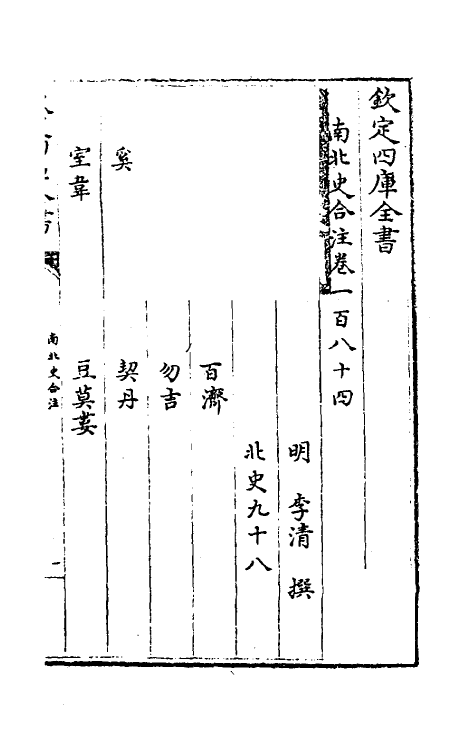 欽定四庫全書
南北史合注卷一百八十四
明 李清 撰
北史九十八
百濟
勿吉
奚 契丹
室韋 豆莫婁
南北史合注